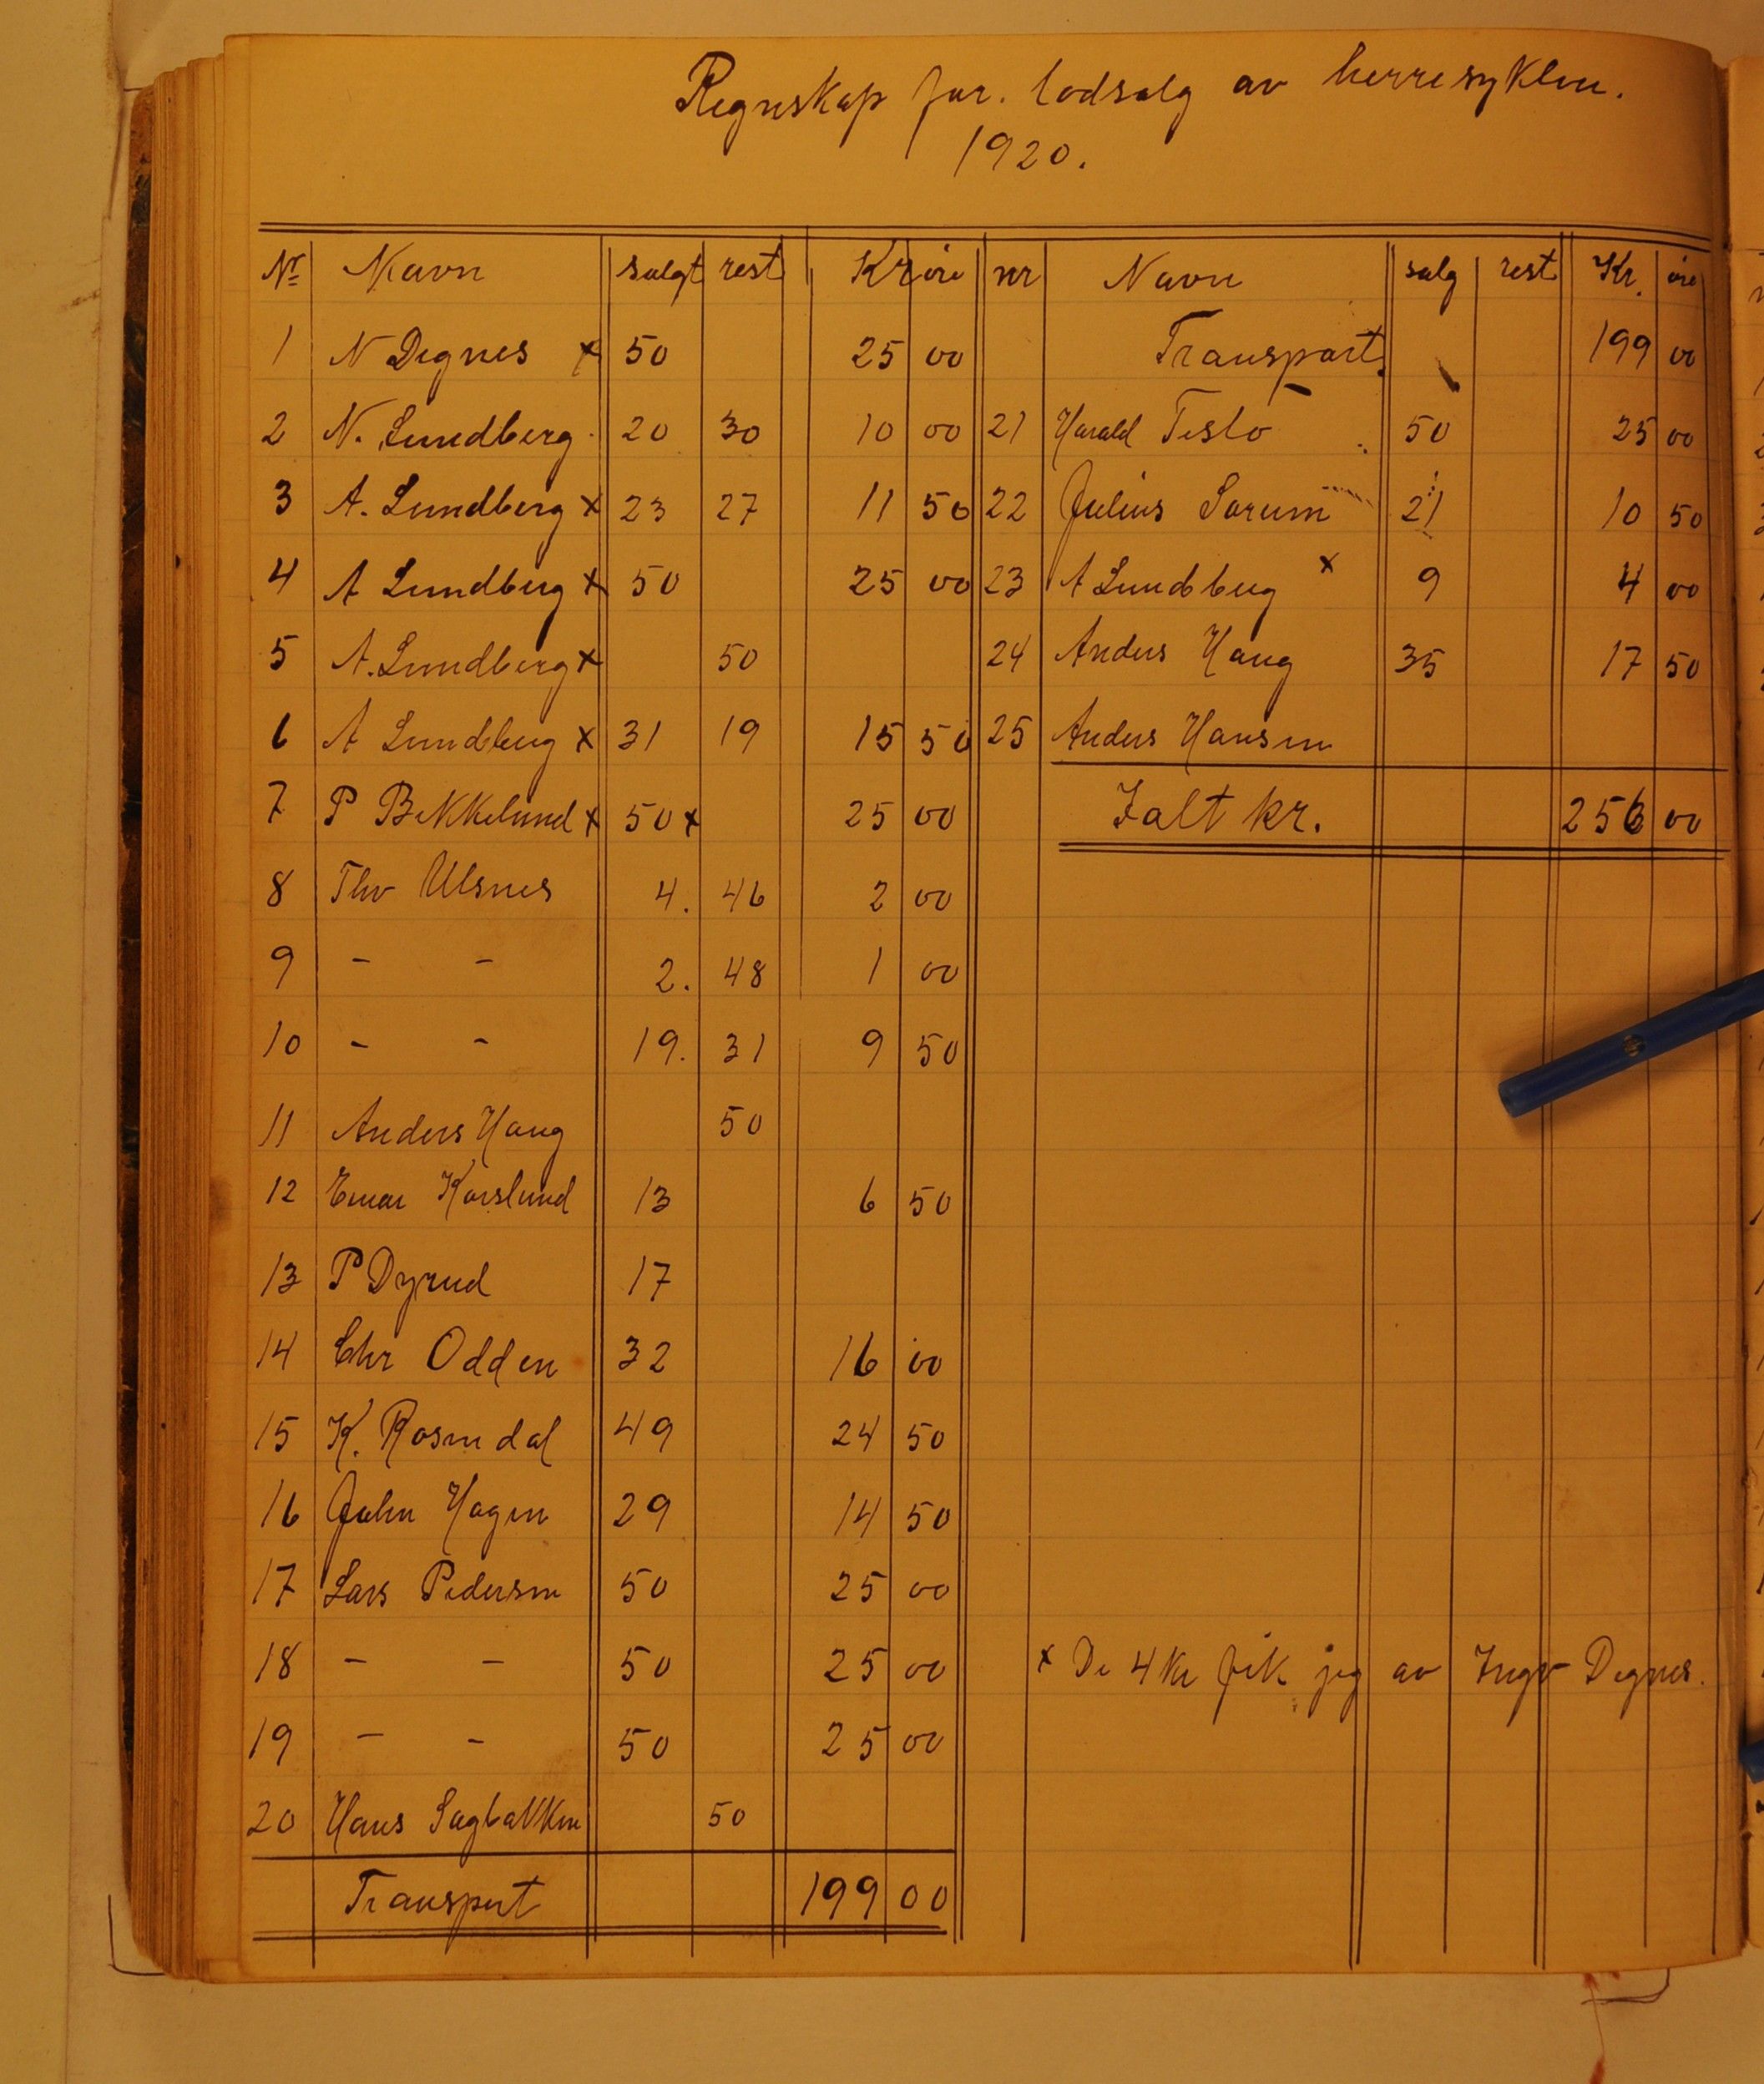 Regnskap for. lodsalg av herresyklen.
1920.
Nr Navn salgt rest Kr øre
1 N Degnes x 50 25 00
2 N. Lundberg 20 30 10 00
3 A. Lundberg x 23 27 11 50
4 A Lundberg x 50 25 00
5 A. Lundberg x 50
6 A Lundberg x 31 19 15 50
7 P Bekkelund x 50 x 25 00
8 Thv Ulsnes 4. 46 2 00
9 - - 2. 48 1 00
10 - - 19. 31 9 50
11 Anders Haug 50
12 Einar Korslund 13 6 50
13 P Dyrud 17
14 Chr Odden 32 16 00
15 K. Rosendal 49 24 50
16 John Hagen 29 14 50
17 Lars Pedersen 50 25 00
18 - - 50 25 00
19 - - 50 25 00
20 Hans Sagbakken 50
Transport 199 00
nr Navn salg rest Kr. øre
Transport. 199 00
21 Harald Teslo 50 25 00
22 Julius Sørum 21 10 50
23 A Lundberg x 9 4 00
24 Anders Haug 35 17 50
25 Anders Hansen
Ialt kr. 256 00
x De 4 kr fik jeg av Ingv Degnes.